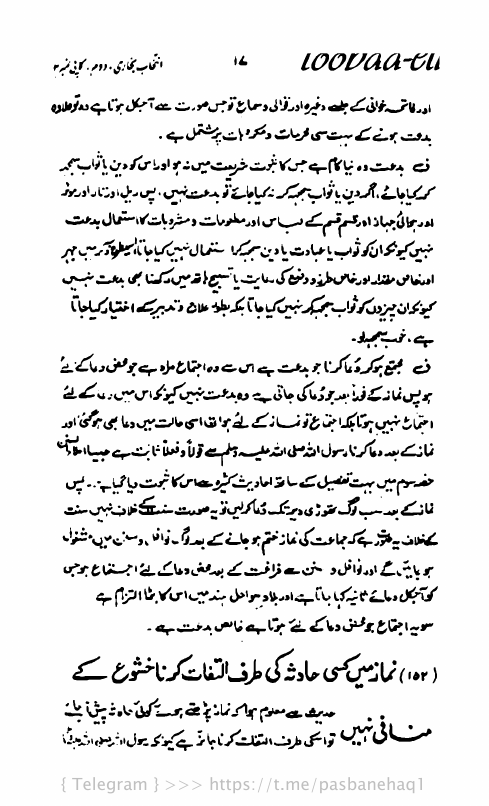 انتخاب بخاری، دوم، کاپی نمبر ۲ ۱۷ toobaa-eli
اور فاتحہ خوانی کے جلسے وغیرہ اور قوالی و سماع تو جس صورت سے آجکل ہوتا ہے وہ تو علاوہ
بدعت ہونے کے بہت سی محرمات و مکروہات پر مشتمل ہے۔
ف بدعت وہ نیا کام ہے جس کا ثبوت شریعت میں نہ ہو اور اس کو دین یا ثواب سمجھ
کر کیا جائے، اگر دین یا ثواب سمجھ کر نہ کیا جائے تو بدعت نہیں، پس ریل اور تار اور موٹر
اور ہوائی جہاز اور قسم قسم کے لباس اور مطعومات و مشروبات کا استعمال بدعت
نہیں کیونکہ ان کو ثواب یا عبادت یا دین سمجھ کر استعمال نہیں کیا جاتا اسی طرح میں
اور خاص مقدار اور خاص طرز و وضع کی رعایت یا تسبیح ہاتھ میں رکھنا بھی بدعت نہیں
کیونکہ ان چیزوں کو ثواب سمجھ کر نہیں کیا جاتا بلکہ بطور علاج و تدبیر کے اختیار کیا جاتا
ہے، خوب سمجھ لو۔
ف مجتمع ہو کر دعا کرنا جو بدعت ہے اس سے وہ اجتماع مراد ہے جو محض دعا کے لئے
ہو پس نماز کے فوراً بعد جو دعا کی جاتی ہے وہ بدعت نہیں کیونکہ اس میں دعا کے لئے
اجتماع نہیں ہوتا بلکہ اجتماع تو نماز کے لئے ہوا تھا اسی حالت میں دعا بھی ہو گئی اور
نماز کے بعد دعا کرنا رسول اللہ صلی اللہ علیہ وسلم سے قولاً و فعلاً ثابت ہے جیسا اعلاء السنن
حصہ سوم میں بہت تفصیل کے ساتھ احادیث کثیرہ سے اس کا ثبوت دیا گیا ہے۔ پس
نماز کے بعد سب لوگ تھوڑی دیر تک دعا کر لیں تو یہ صورت سنت کے خلاف نہیں سنت
کے خلاف یہ طرز ہے کہ جماعت کی نماز ختم ہو جانے کے بعد لوگ نوافل و سنن میں مشغول
ہو جائیں گے اور نوافل و سنن سے فراغت کے بعد محض دعا کے لئے اجتماع ہو جس
کو آجکل دعائے ثانیہ کہا جاتا ہے اور بلاد سواحل ہند میں اس کا بڑا التزام ہے
سو یہ اجتماع جو محض دعا کے لئے ہوتا ہے خالص بدعت ہے۔
(۱۵۲) نماز میں کسی حادثہ کی طرف التفات کرنا خشوع کے
منافی نہیں حدیث سے معلوم ہوا کہ نماز پڑھتے ہوئے کوئی حادثہ پیش آئے
تو اس کی طرف التفات کرنا جائز ہے کیونکہ رسول اللہ صلی اللہ علیہ
{ Telegram } >>> https://t.me/pasbanehaq1